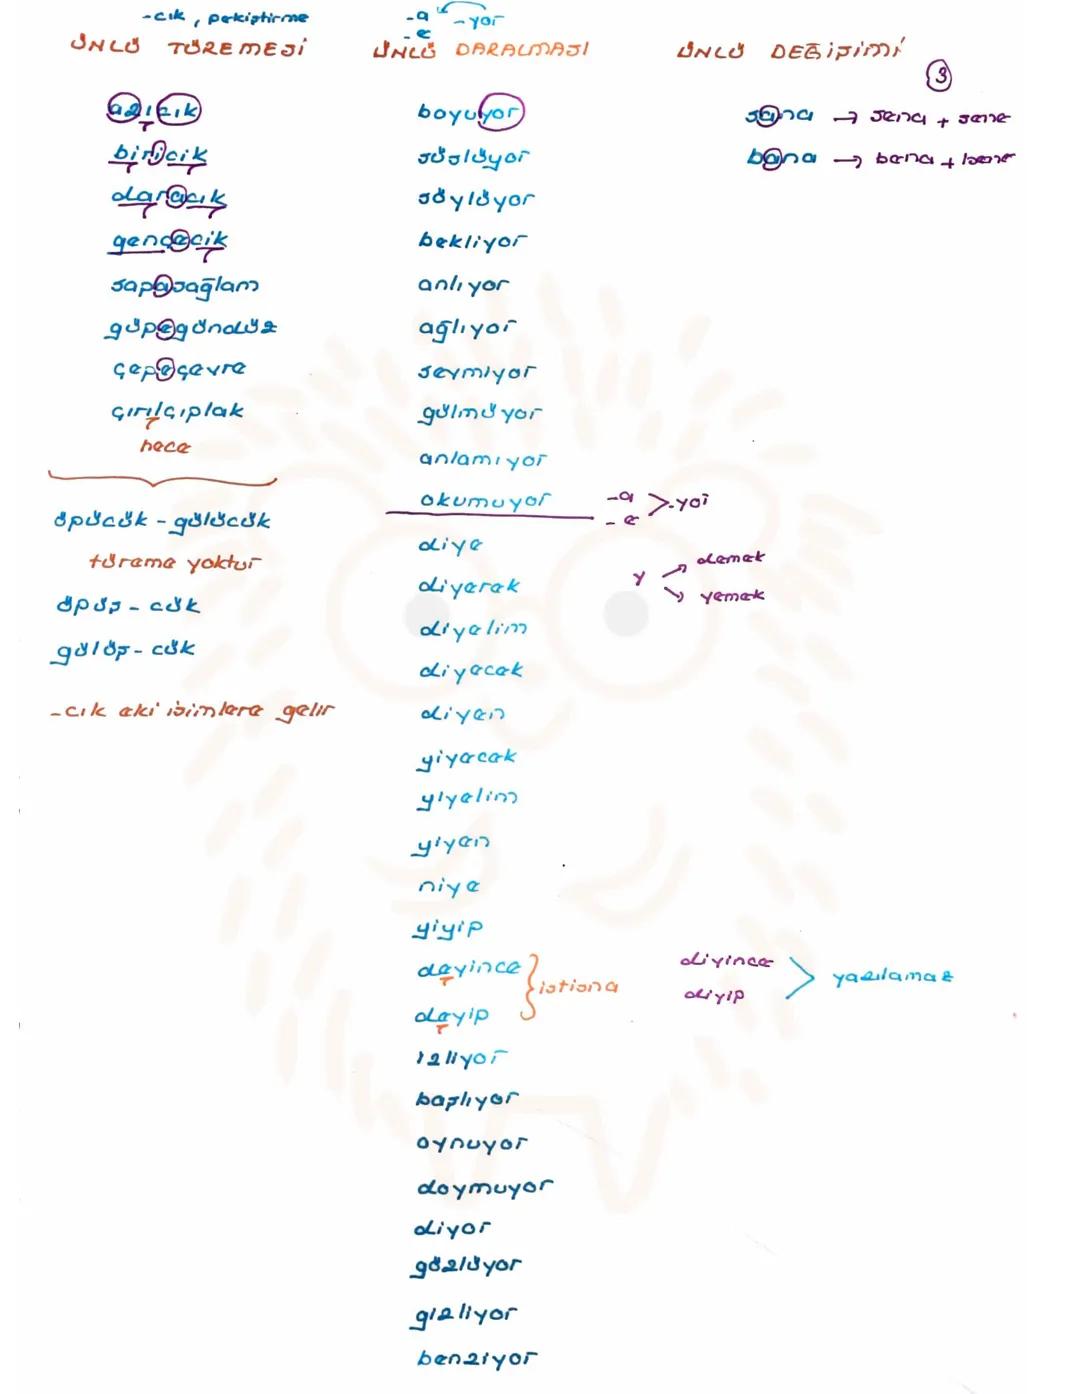 -cık, pekiştirme
ÜNLÜ TÜREMESİ
azıcık
biricik
daracık
gencecik
sapasağlam
güpegündüz
çepeçevre
çırılçıplak
hece
öpücük - gülücük
türeme yoktur
öpüş - cük
gülüş - cük
-cık eki isimlere gelir
-a -yor
-e
ÜNLÜ DARALMASI
boyuyor
süslüyor
söylüyor
bekliyor
anlıyor
ağlıyor
sevmiyor
gülmüyor
anlamıyor
okumuyor
-a > -yor
-e
diye
diyerek
diyelim
diyecek
diyen
yiyecek
yiyelim
yiyen
niye
yiyip
deyince
deyip
istisna
izliyor
başlıyor
oynuyor
doymuyor
diyor
gözlüyor
gizliyor
benziyor
y → demek
→ yemek
diyince
diyip
yazılamaz
ÜNLÜ DEĞİŞİMİ
3
sana → sena + sene
bana → bena + bene